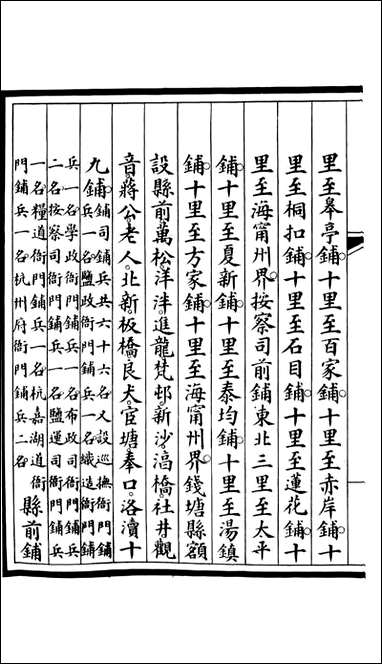 里至皋亭鋪十里至百家鋪十里至赤岸鋪十
里至桐扣鋪十里至石目鋪十里至蓮花鋪十
里至海甯州界按察司前鋪東北三里至太平
鋪十里至夏新鋪十里至泰均鋪十里至湯鎮
鋪十里至方家鋪十里至海甯州界錢塘縣額
設縣前萬松洋泮進龍梵邨新沙滈橋社井觀
音蔣公老人北新板橋艮犬官塘奉口洛瀆十
九鋪鋪司鋪兵共六十六名又設巡撫衙門鋪
兵一名鹽政衙門鋪兵一名織造衙門鋪
兵一名學政衙門鋪兵一名布政司衙門鋪兵
二名按察司衙門鋪兵一名鹽運司衙門鋪兵
一名糧道衙門鋪兵一名杭嘉湖道衙
門鋪兵一名杭州府衙門鋪兵二名縣前鋪